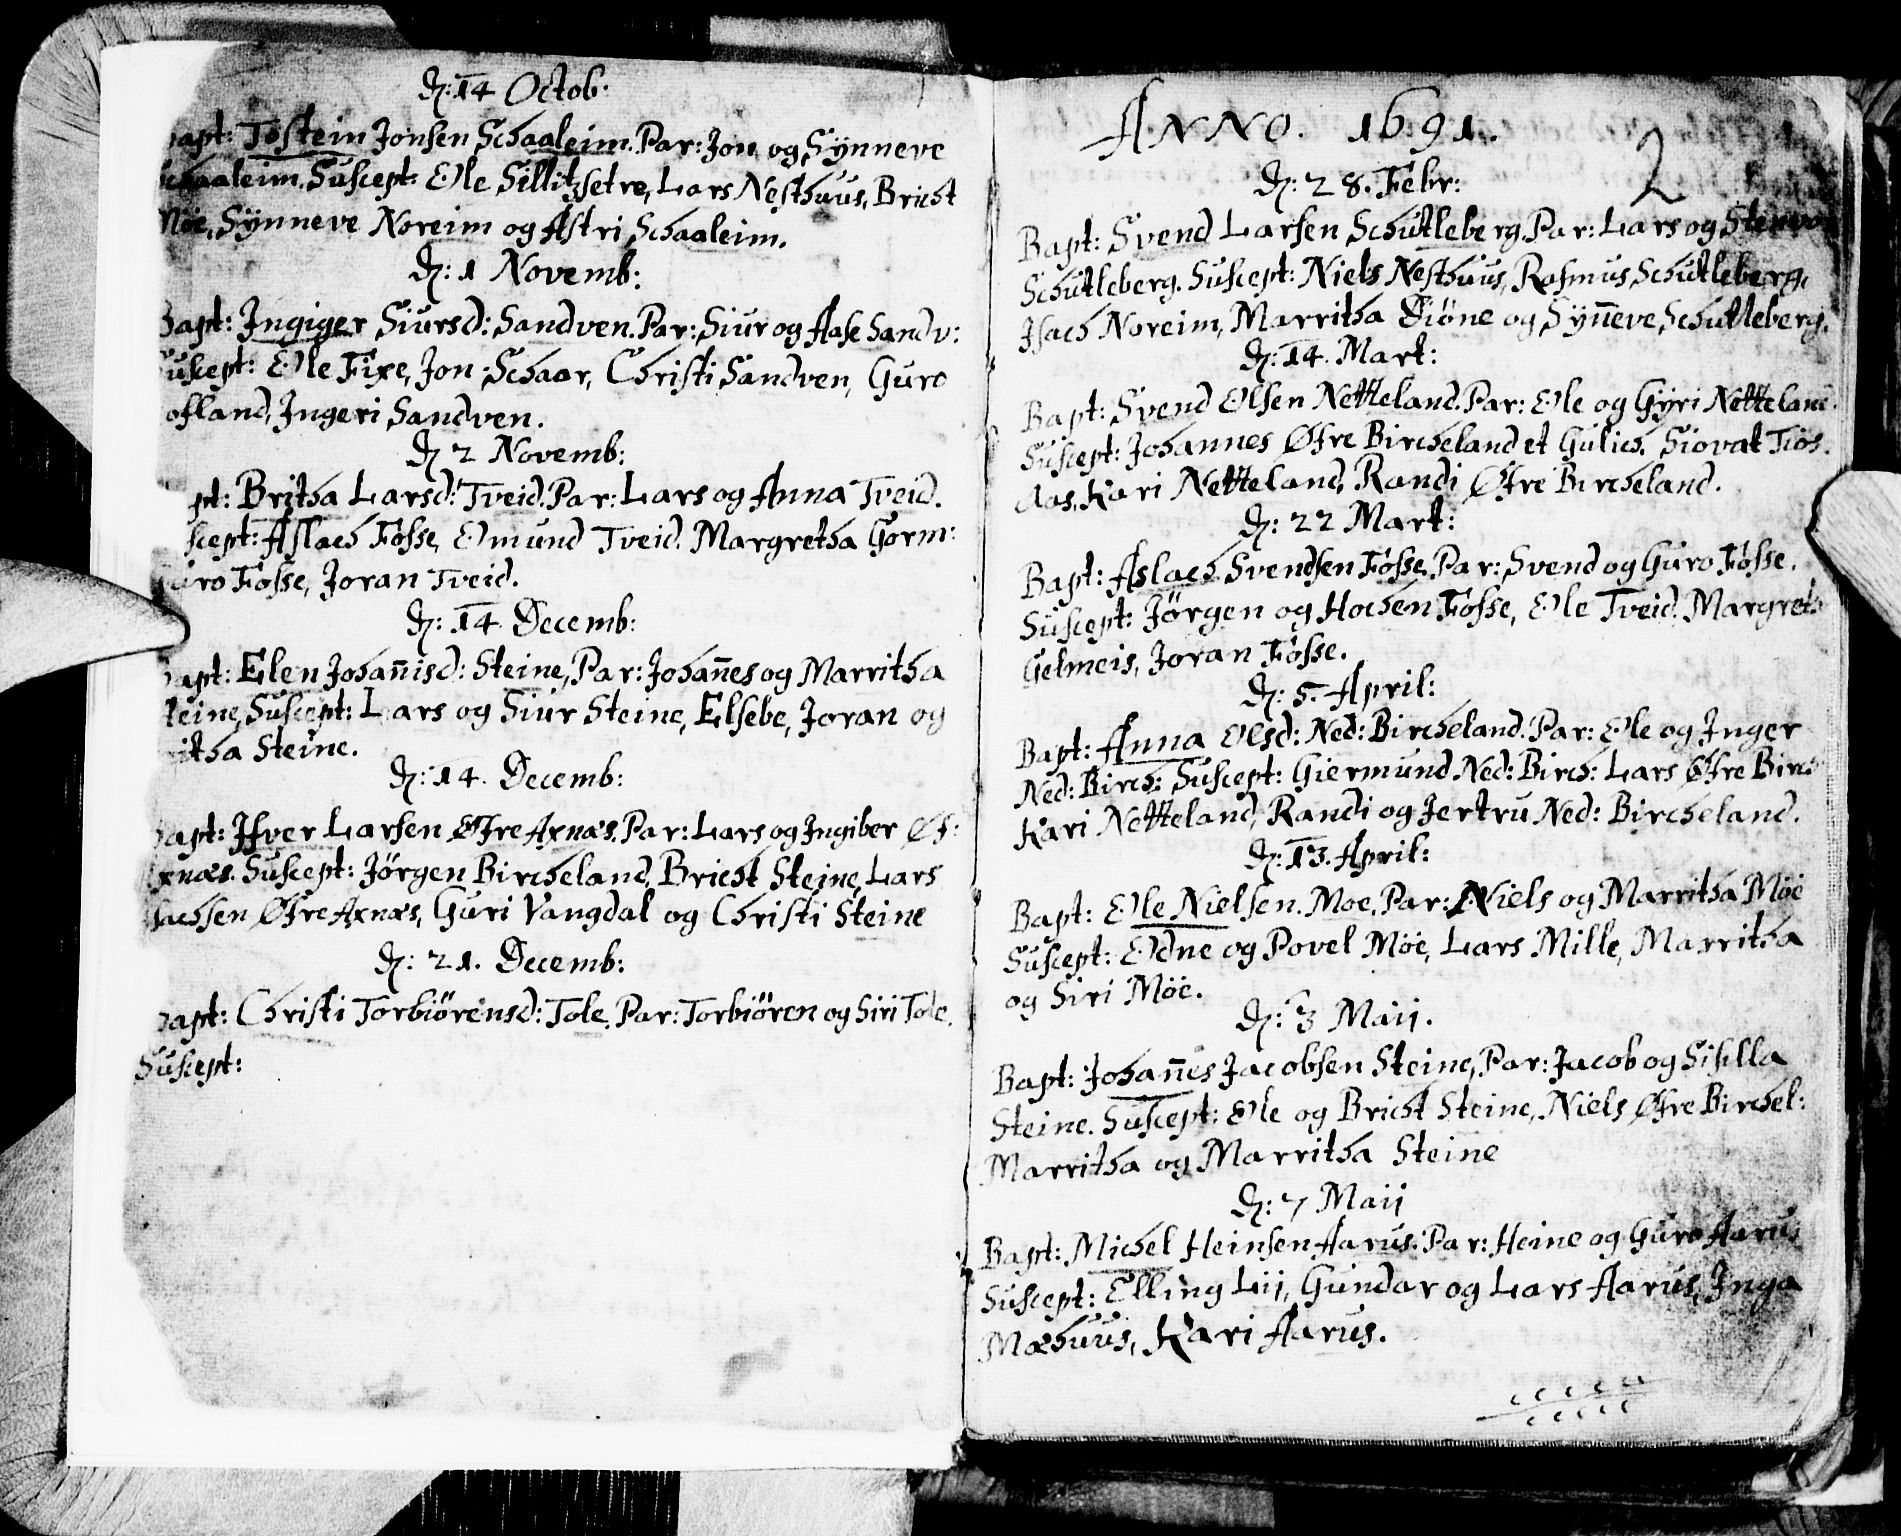 D: 14 Octob:
Bapt: Tostein Jonsen Schaaleim. Par: Jon og Synneve
Schaaleim. Suscept: Ole Sillitzsetre, Lars Nesthuus, Bricht
Möe, Synneve Noreim og Astri Schaaleim.
D: 1 Novemb:
Bapt: Ingiger Siursd: Sandven. Par: Siur og Aase Sandv:
Suscept: Ole Fixe, Jon Schaar, Christi Sandven, Guro
ofland, Ingeri Sandven.
D 2 Novemb:
pt: Britha Larsd: Tveid. Par: Lars og Anna Tveid.
scept: Aslach Fosse, Omund Tveid. Margretha Gorm:
Guro Fosse, Joran Tveid.
D: 14 Decemb:
Bapt: Elen Johañisd: Steine, Par: Johañes og Marritha
Steine, Suscept: Lars og Siur Steine, Elsebe, Joran og
itha Steine.
D: 14. Decemb:
Bapt: Ifver Larsen Øfre Axnæs. Par: Lars og Ingiber Øf:
Axnæs. Suscept: Jörgen Bircheland, Bricht Steine, Lars
achsen Øfre Axnæs, Guri Vangdal og Christi Steine
D: 21. Decemb:
Bapt: Christi Torbiörensd: Tole. Par: Torbiören og Siri Tole.
Suscept:
ANNO. 1691.
2
D: 28. Febr:
Bapt: Svend Larsen Schutleberg. Par: Lars og
Schutleberg. Suscept: Niels Nesthuus, Rasmus Schutleberg,
Isach Noreim, Marritha Diöne og Syñeve Schutleberg.
D: 14. Mart:
Bapt: Svend Olsen Netteland. Par: Ole og Gyri Netteland.
Suscept: Johannes Øfre Bircheland et Gulich. Siovat Tios.
Aas, Kari Netteland, Randi Øfre Bircheland.
D: 22 Mart:
Bapt: Aslach Svendsen Fosse, Par: Svend og Guro Fosse.
Suscept: Jörgen og Hochen Fosse, Ole Tveid. Margreth
Gelmeis, Joran Fosse.
D: 5. April:
Bapt: Anna Olsd: Ned: Bircheland. Par: Ole og Inger
Ned: Birch: Suscept: Giermund Ned: Birch: Lars Øfre Birch
Kari Netteland, Randi og Jertru Ned: Bircheland.
D: 13. April:
Bapt: Ole Nielsen. Moe, Par: Niels og Marritha Möe
Suscept: Odne og Povel Möe, Lars Mille, Marritha
og Siri Möe.
D: 3 Maij.
Bapt: Johañes Jacobsen Steine, Par: Jacob og Sisilla
Steine. Suscept: Ole og Bricht Steine, Niels Øfre Birchel:
Marritha og Marritha Steine
D: 7 Maij
Bapt: Michel Heinsen Aarus. Par: Heine og Guro Aarus
Suscept: Elling Lij, Gundar og Lars Aarus, Inga
Mæhuus, Kari Aarus.